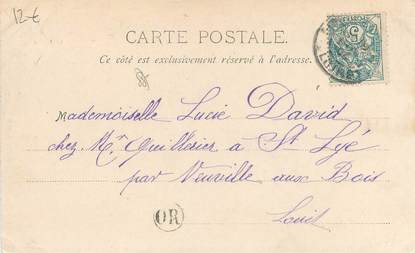 12-€
CARTE POSTALE.
Ce côté est exclusivement réservé à l'adresse.
5
Mademoiselle Lucie David
chez Mr Quillerier à St Lyé
par Neuville aux Bois
Loiret
OR